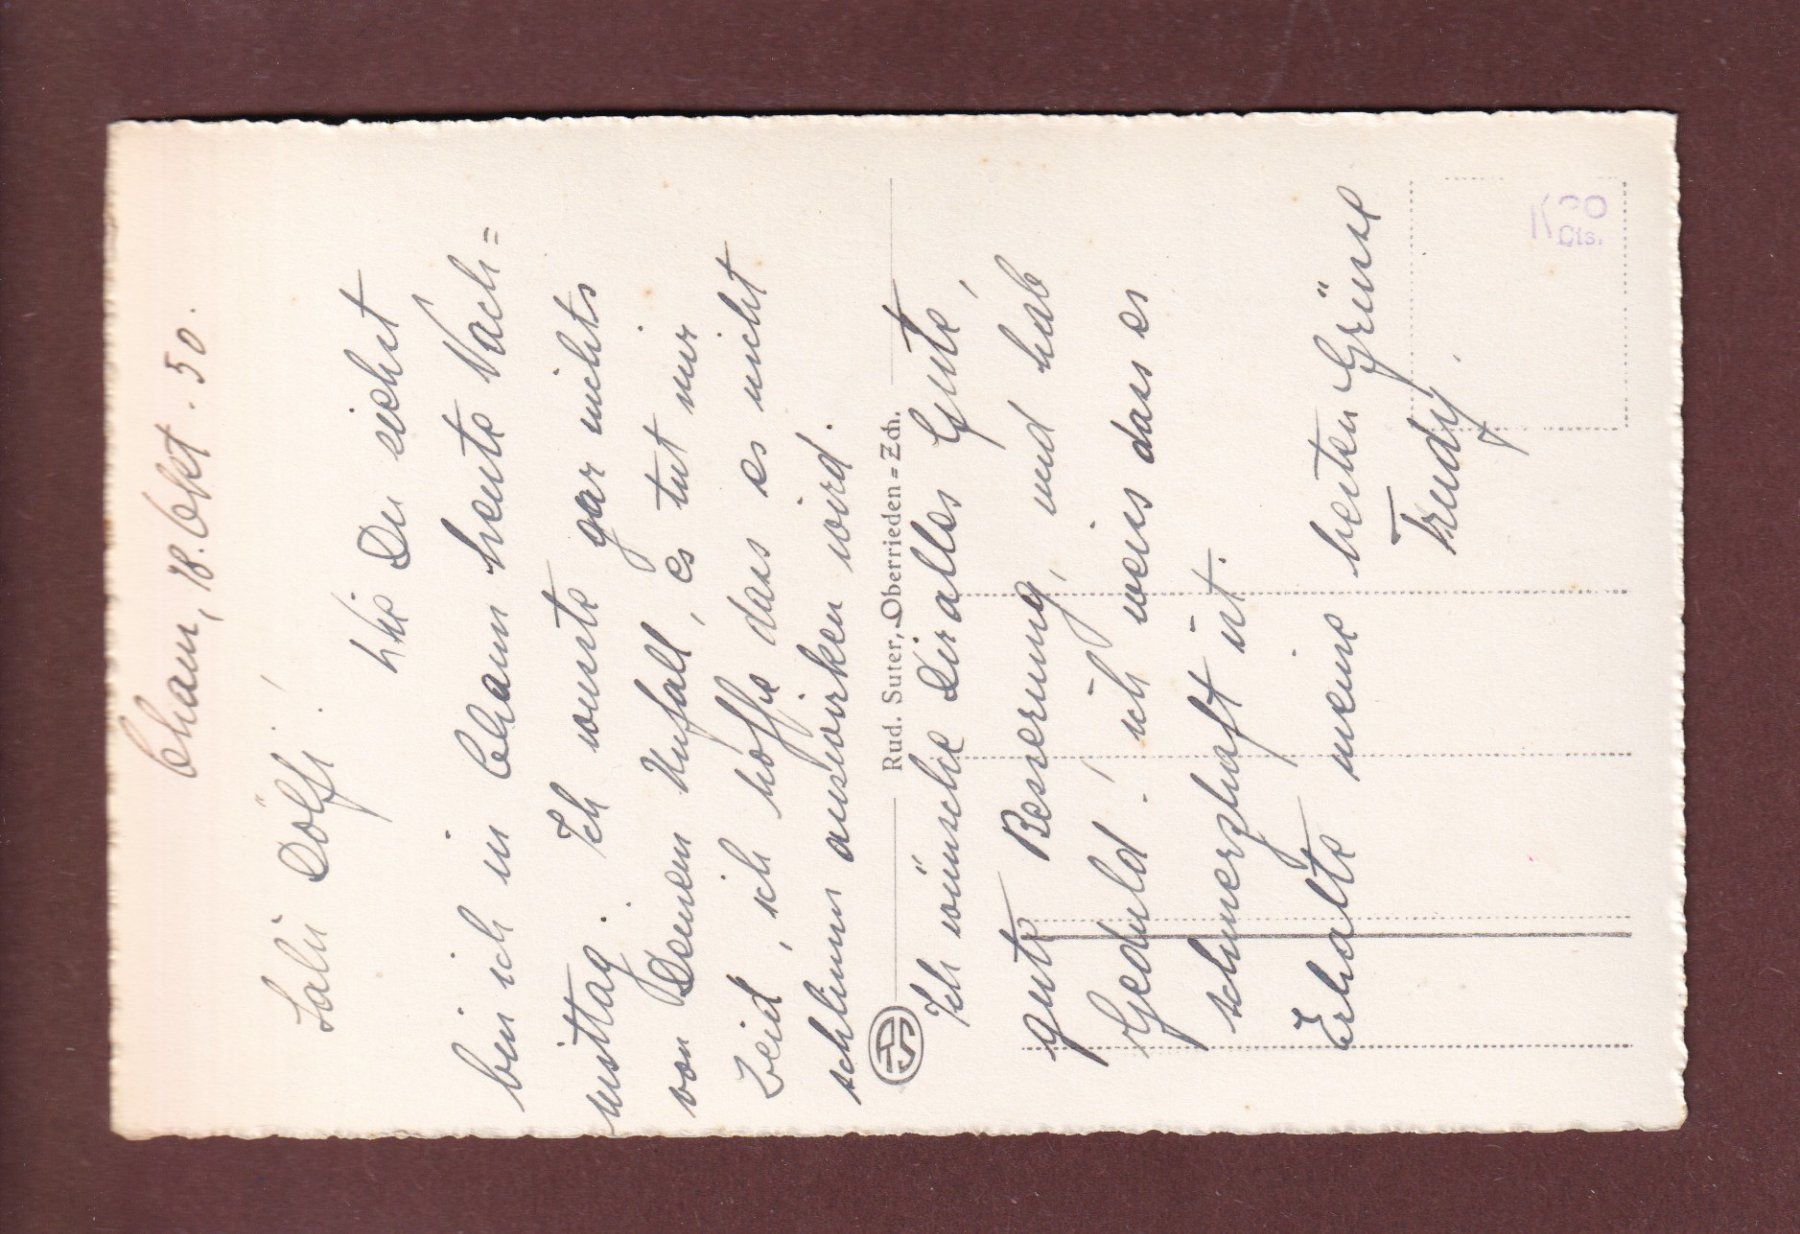 Cham, 18. Okt. 50.
Salü Dölfi!
Wie Du siehst
bin ich in Cham heute Nach=
mittag. Ich wusste gar nichts
von Deinem Unfall, es tut mir
Leid, ich hoffe dass es nicht
schlimm auswirken wird.
Rud. Suter, Oberrieden=Zch.
Ich wünsche Dir alles Gute,
gute Besserung, und hab
Geduld! ich weiss dass es
schmerzhaft ist.
Erhalte meine besten Grüsse
Trudy.
Cts.